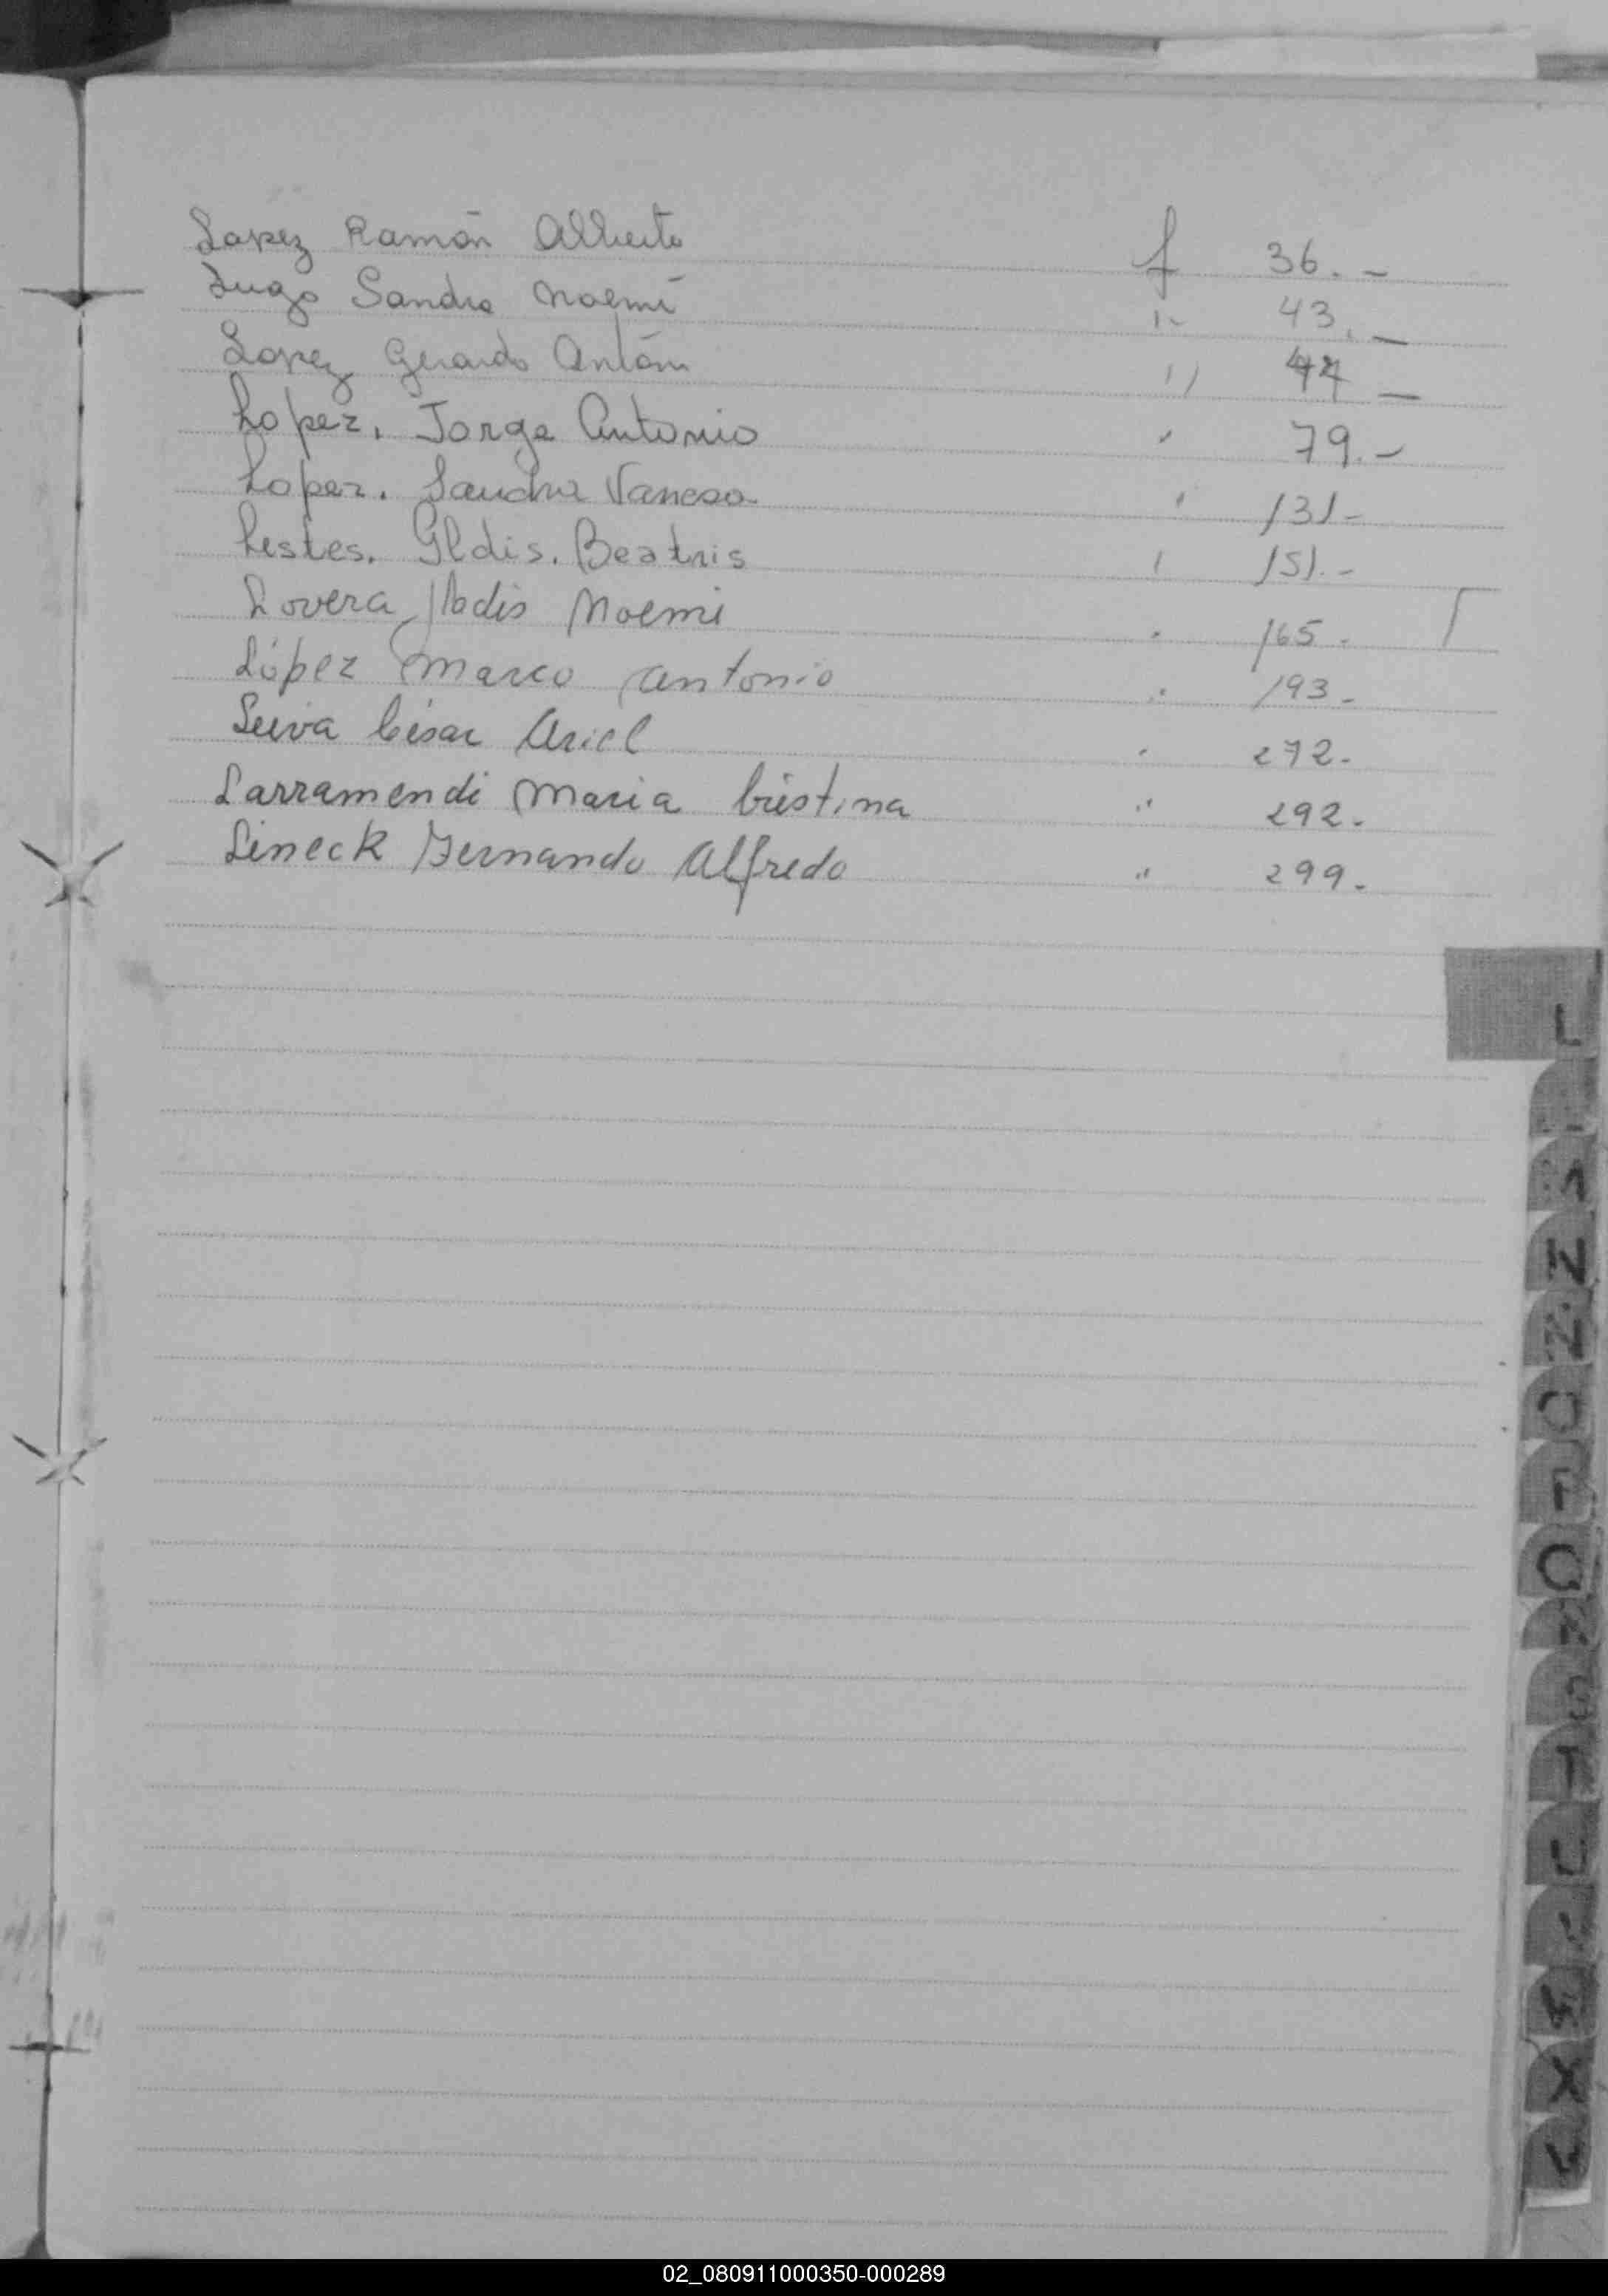 Lopez Ramón Alberto f 36. -
Lugo Sandra Noemí " 43. -
Lopez Gerardo Antón " 47 -
Lopez, Jorge Antonio " 79. -
Lopez. Sandra Vanesa " 131 -
Lestes. Gldis. Beatris " 151. -
Lovera Noemi " 165 -
López Marco Antonio " 193 -
Leiva César Ariel " 272 -
Larramendi Maria Cristina " 292 -
Lineck Fernando Alfredo " 299 -
L
N
Ñ
O
P
Q
R
S
T
U
X
02_080911000350-000289